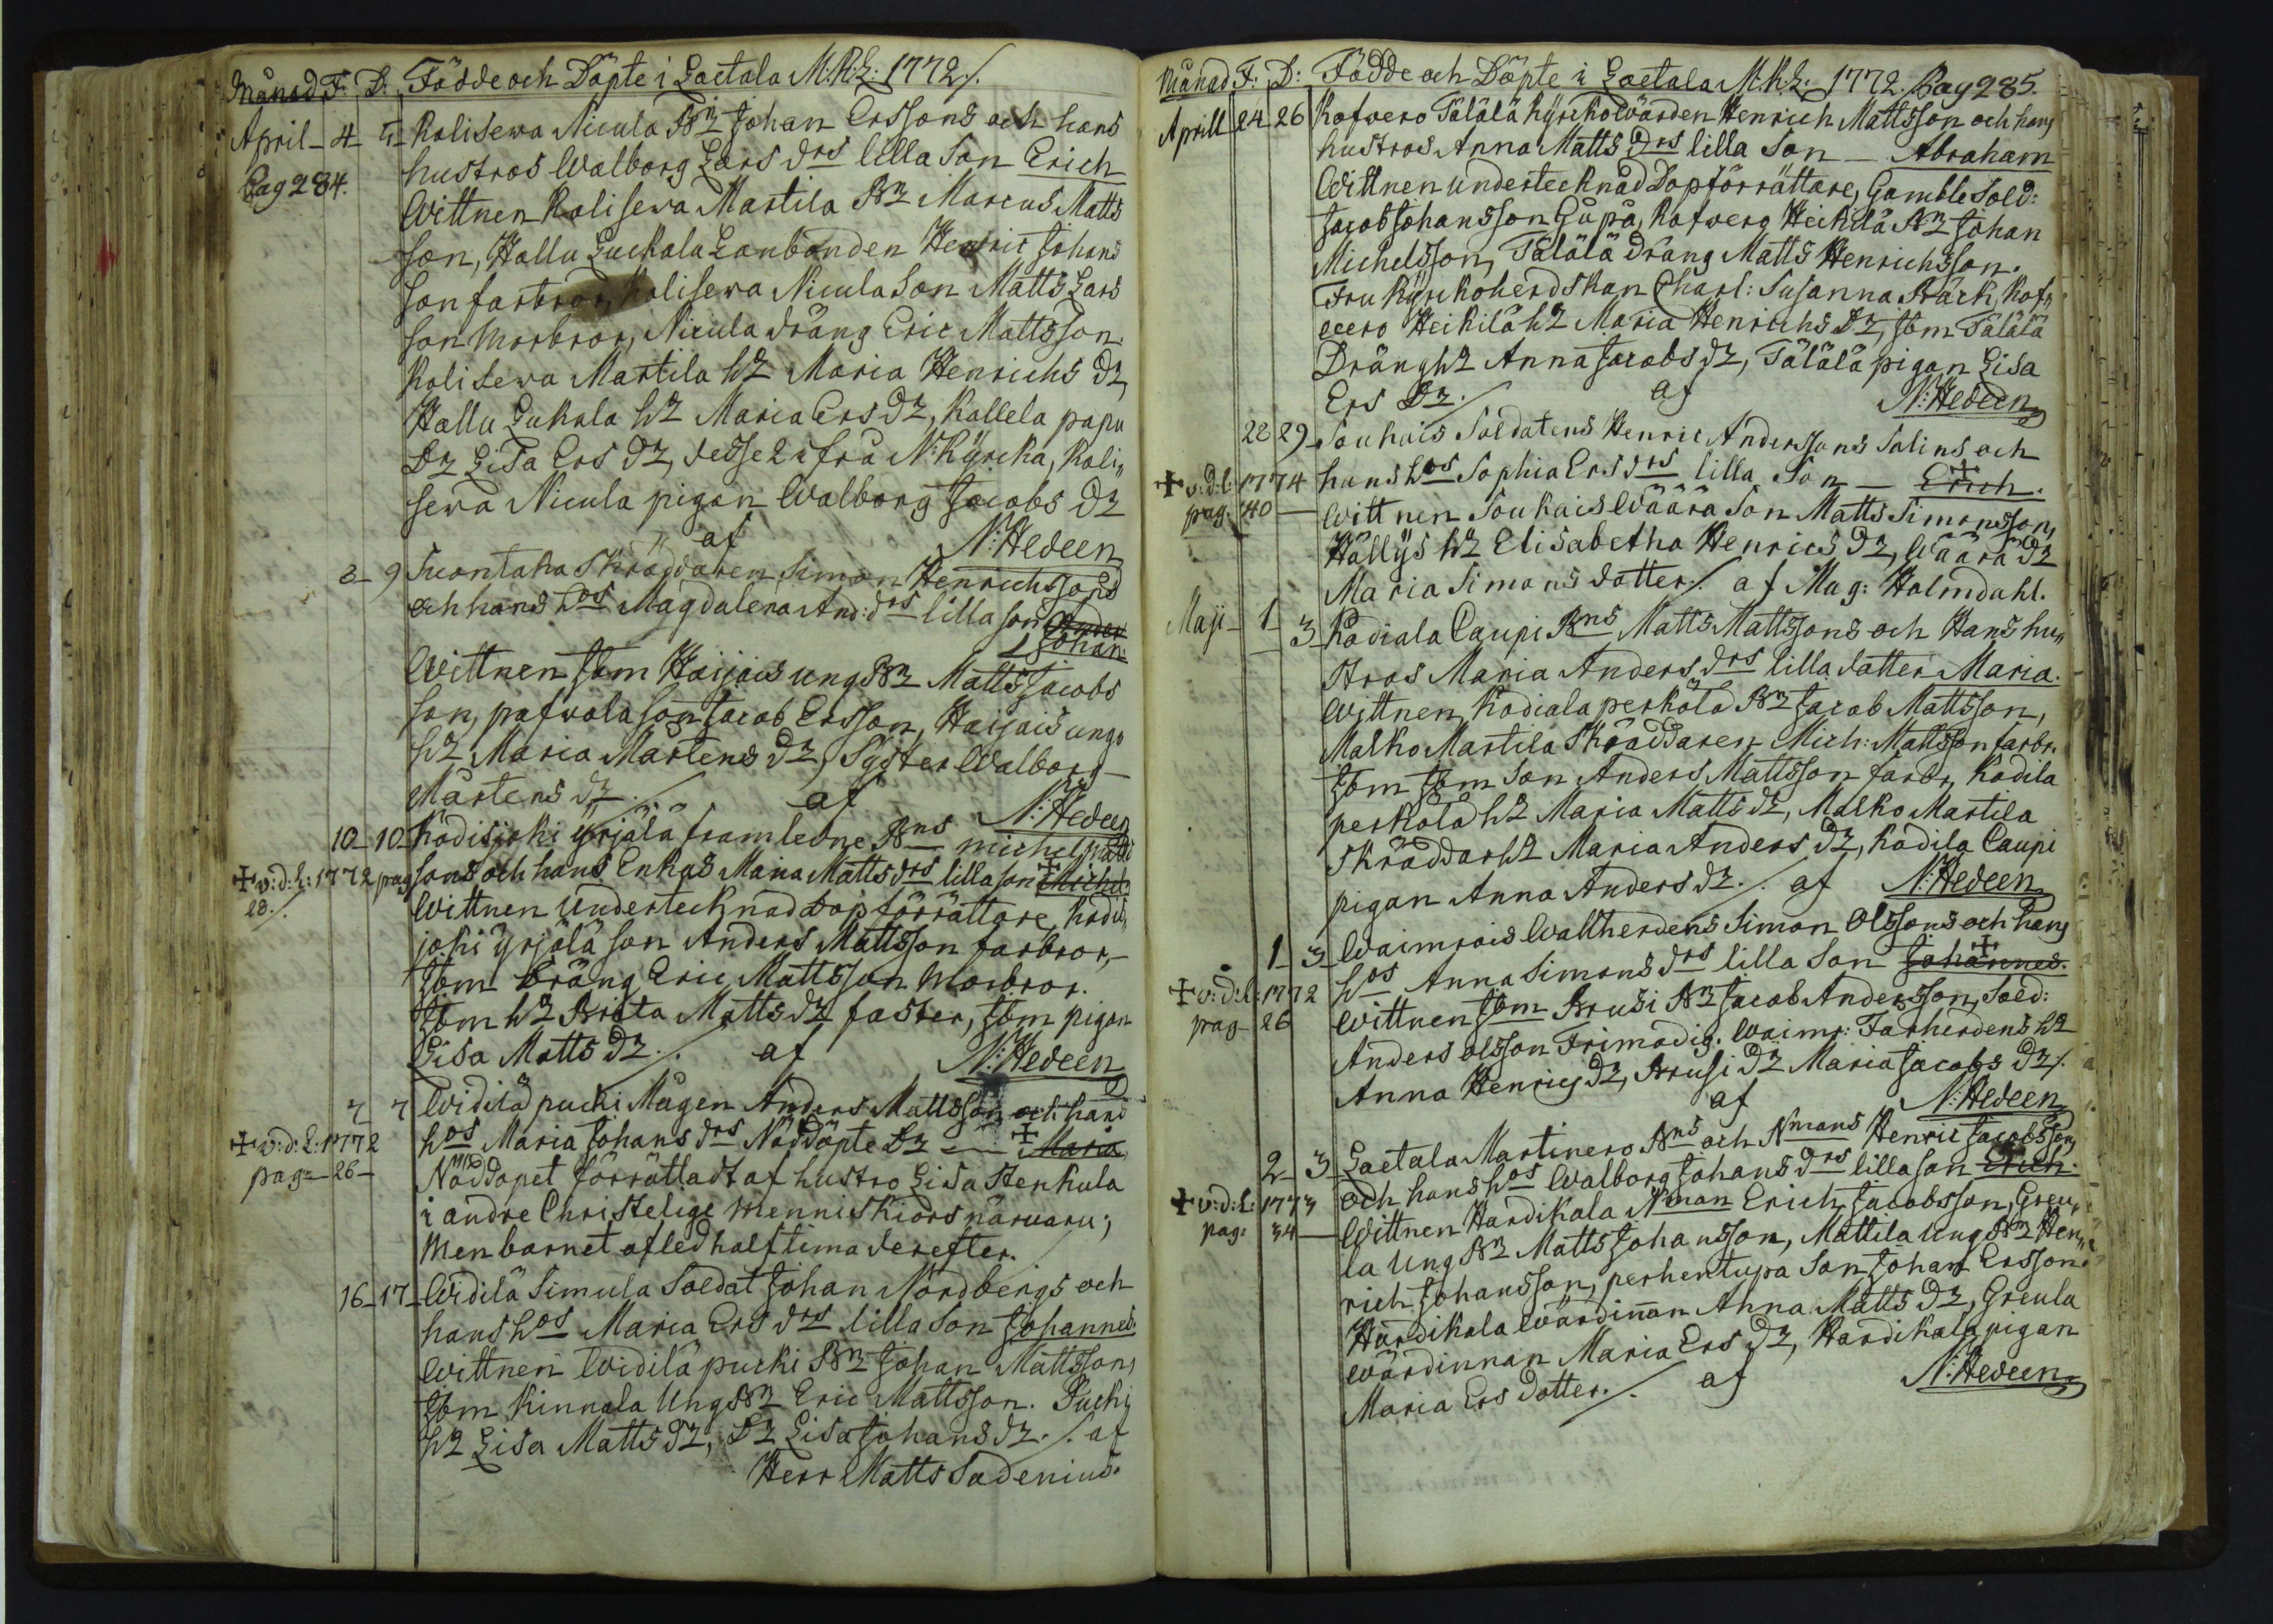 Månad F: D: Födde och Döpte i Laetala M:K:L: 1772 ./.
April 4 5 Kolisewa Nicula Bz Johan Erssons och hans
Pag 284. hustros Walborg Lars drs lilla Son Erich
Wittnen Kolisewa Martila Bz Marcus Matts
son, Hallu Luckala Lanbonden Henric Johans
son farbror, Kolisewa Nicula Son Matts Lars
son Morbror, Nicula dräng Eric Mattsson.
Kolisewa Martila hz Maria Henrichs dz,
Hallu Lukala hz Maria Ers dz, Kallela papu
Dz Lisa Ers dz, desse 2 ifrå N: Kyrcka, Koli„
sewa Nicula pigan Walborg Jacobs dz
af N: Hedeen
8 9 Suontaka Skräddaren Simon Henrichssons
och hans hos Magdalena And: drs lilla son Ander
Johan:
Wittnen Jbm Haijais ung Bz Matts Jacobs
son, pafwola son Jacob Ersson, Haijais unga
hz Maria Mårtens dz, Syster Walborg
Mårtens dz ./. af N: Hedeen
10 10 Kodisjoki Yrjälä framledne Bns Michel Matts
✝ v: d: L: 1772 pag sons och hans Enkas Maria Matts drs lilla son Michel
28 ./. Wittnen Undertecknad dopförrättare, Kodis„
joki Yrjälä son Anders Mattsson farbror,
Jbm Dräng Eric Mattsson Morbror.
Jbm hz Brita Matts dz faster, Jbm pigan
Lisa Matts dz ./. af N: Hedeen
7 7 Widilä pucki Mågen Anders Mattsson och hans
✝ v: d: L: 1772 hos Maria Johans drs Nöddöpte Dz ✝ Maria
pag 26 Nöddopet förrättadt af hustro Lisa Stenkula
i andre Christelige Menniskiors närwaru;
Men barnet afled half tima derefter.
16 17 Widilä Simula Soldat Johan Nordbergs och
hans hos Maria Ers drs lilla Son Johannes.
Wittnen Widilä pucki Bz Johan Mattsson,
Jbm Kinnala Ung Bz Eric Mattsson. Pucki
hz Lisa Matts dz, Dz Lisa Johans dz ./. af
Herr Matts Sadenius.
Månad F: D: Födde och Döpte i Laetala M:K:L: 1772. Pag 285.
Aprill 24 26 Kofwero Tälälä Kyrckowärden Henrich Mattsson och hans
hustros Anna Matts Drs lilla Son Abraham
Wittnen undertecknad Dopförrättare, Gamble Sold:
Jacob Johansson Gupå, Kofwero Heickilä Bz Johan
Michelsson, Tälälä dräng Matts Henrichsson.
Fru Kyrckoherdskan Charl: Susanna Bäck, Kof„
wero Heikilä hz Maria Henrichs Dz, Jbm Tälälä
Dräng hz Anna Jacobs dz, Tälälä pigan Lisa
Ers Dz ./. af N: Hedeen
28 29 Soukais Soldatens Henric Anderssons Salins och
✝ v: d: L: 1774 hans hos Sophia Ers drs lilla Son ✝ Erich.
pag. 40 Wittnen Soukais Wäärä Son Matts Simonsson,
Hällys hz Elisabetha Henrics dz, Wäärä dz
Maria Simons dotter ./. af Mag: Holmdahl.
Maji 1 3 Kodiala Caupi Bns Matts Mattssons och Hans hu„
stros Maria Anders drs lilla dotter Maria.
Wittnen Kodiala perkola Bz Jacob Mattsson,
Malko Martila Skräddaren Mich: Mattsson farbr.
Jbm Jbm Son Anders Mattsson farbr, Kodila
perkola hz Maria Matts dz, Malko Martila
Skräddar hz Maria Anders dz, Kodila Caupi
pigan Anna Anders dz ./. af N: Hedeen
1 3 Waimrois Wallherdens Simon Olssons och hans
✝ v: d: L: 1772 hos Anna Simons drs lilla Son ✝ Johannes.
pag 26 Wittnen Jbm Brusi Bz Jacob Andersson, Sold:
Anders Olsson Frimodig. Waimr: Farherdens hz
Anna Henrics dz, Brusi Dz Maria Jacobs dz ./.
af N: Hedeen
2 3 Laetala Martinero Bns och Nmans Henric Jacobsson
✝ v: d: L: 1773 och hans hos Walborg Johans drs lilla son Erich.
pag: 34 Wittnen Hardikala Nman Erich Jacobsson, Greu„
la Ung Bz Matts Johansson, Mattila Ung Bz Hen„
rich Johansson, perhentupa Son Johan Ersson.
Hardikala wärdinnan Anna Matts dz, Greula
wärdinnan Maria Ers dz, Hardikala pigan
Maria Ers dotter ./. af N: Hedeen